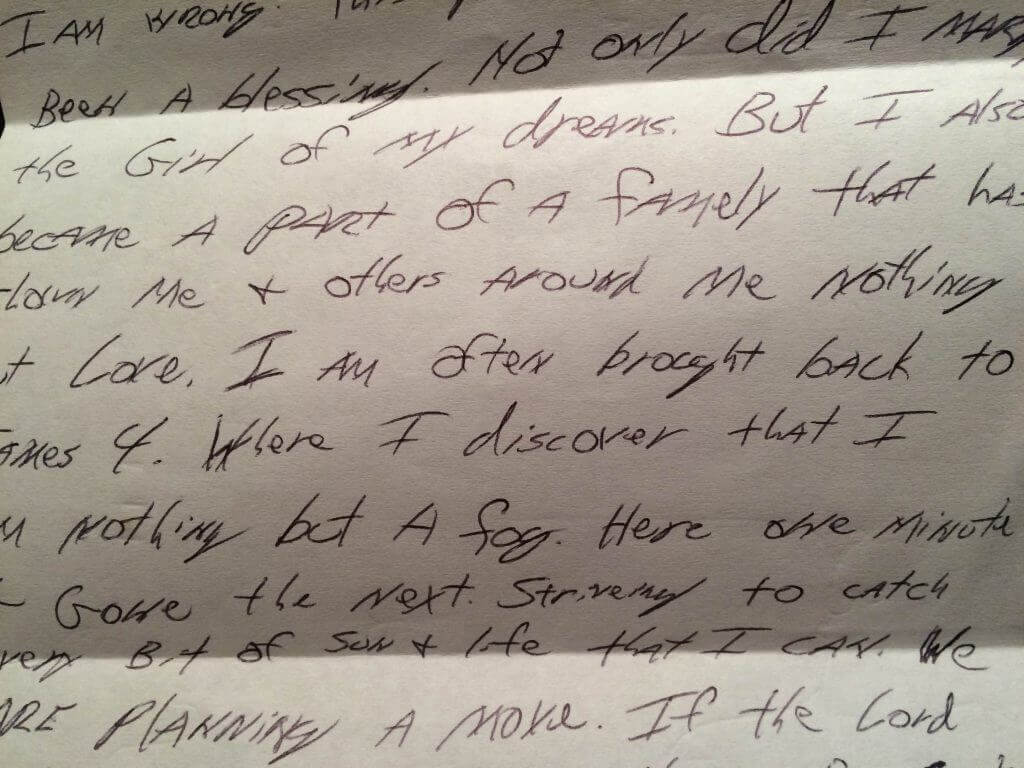 I AM WRONG.
BEEN A blessing. Not only did I MARRY
the Girl of MY dreams. But I Also
became A PART of A famely that has
shown Me & others around Me Nothing
Love. I AM often brought back to
James 4. Where I discover that I
Nothing but A fog. Here one Minute
& Gone the Next. Striveing to catch
every Bit of Sun & life that I CAN. We
ARE PLANNING A MOVE. If the Lord